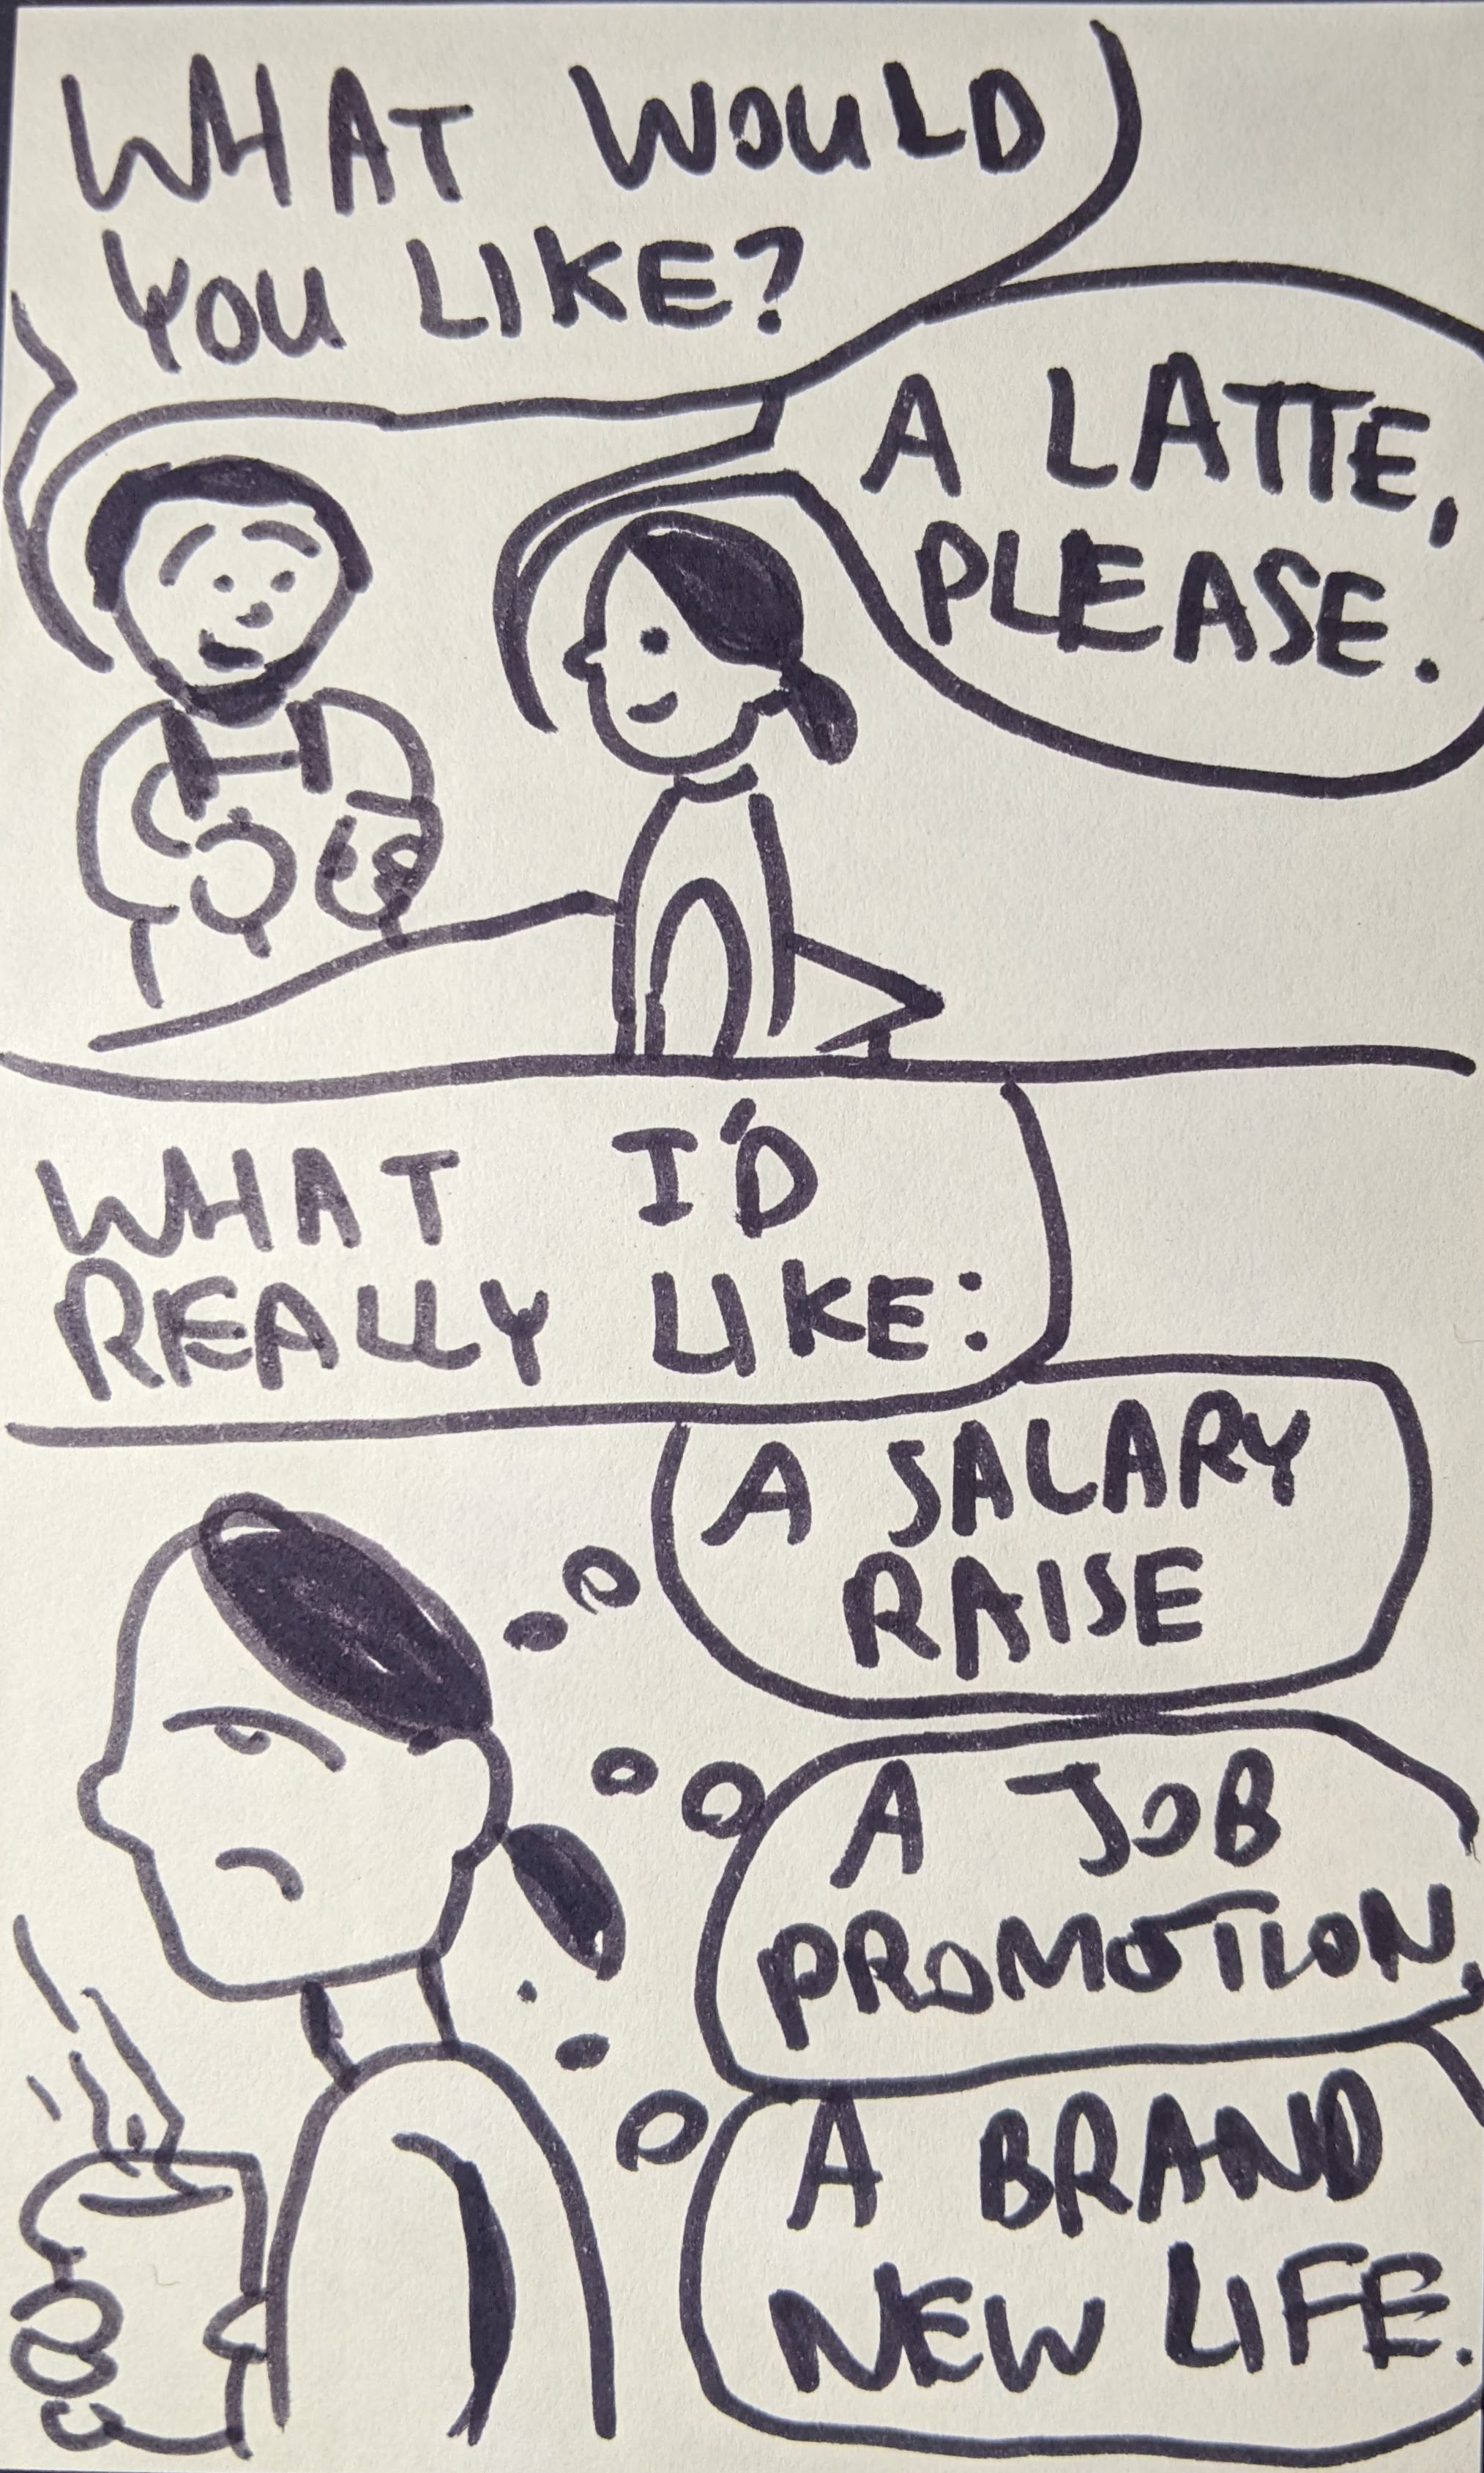 WHAT WOULD
YOU LIKE?
A LATTE,
PLEASE.
WHAT I'D
REALLY LIKE:
A SALARY
RAISE
A JOB
PROMOTION,
A BRAND
NEW LIFE.